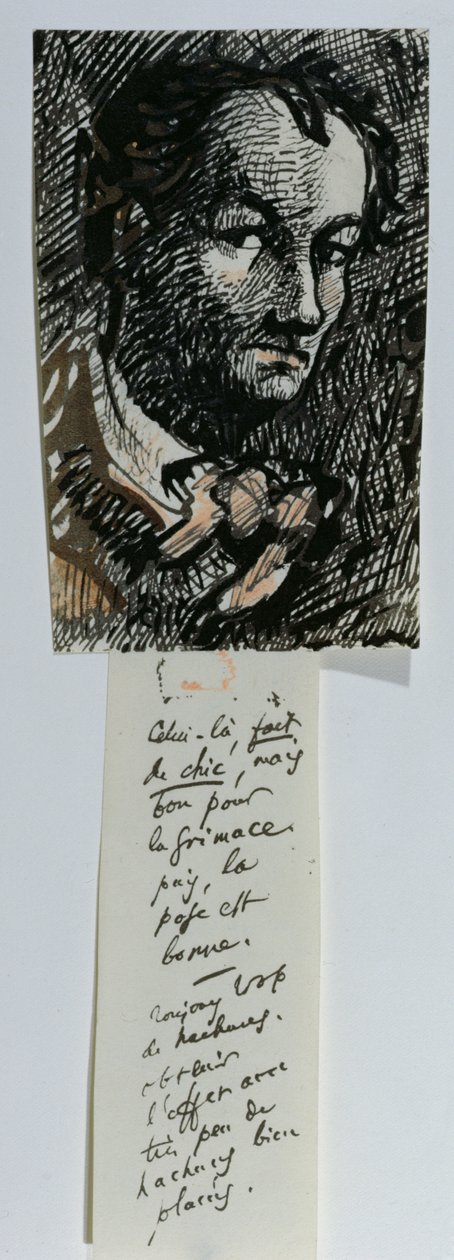 Celui-là, fait
de chic, mais
bon pour
la grimace.
puis, la
pose est
bonne.
—
Toujours trop
de hachures.
obtenir
l'effet avec
très peu de
hachures bien
placées.